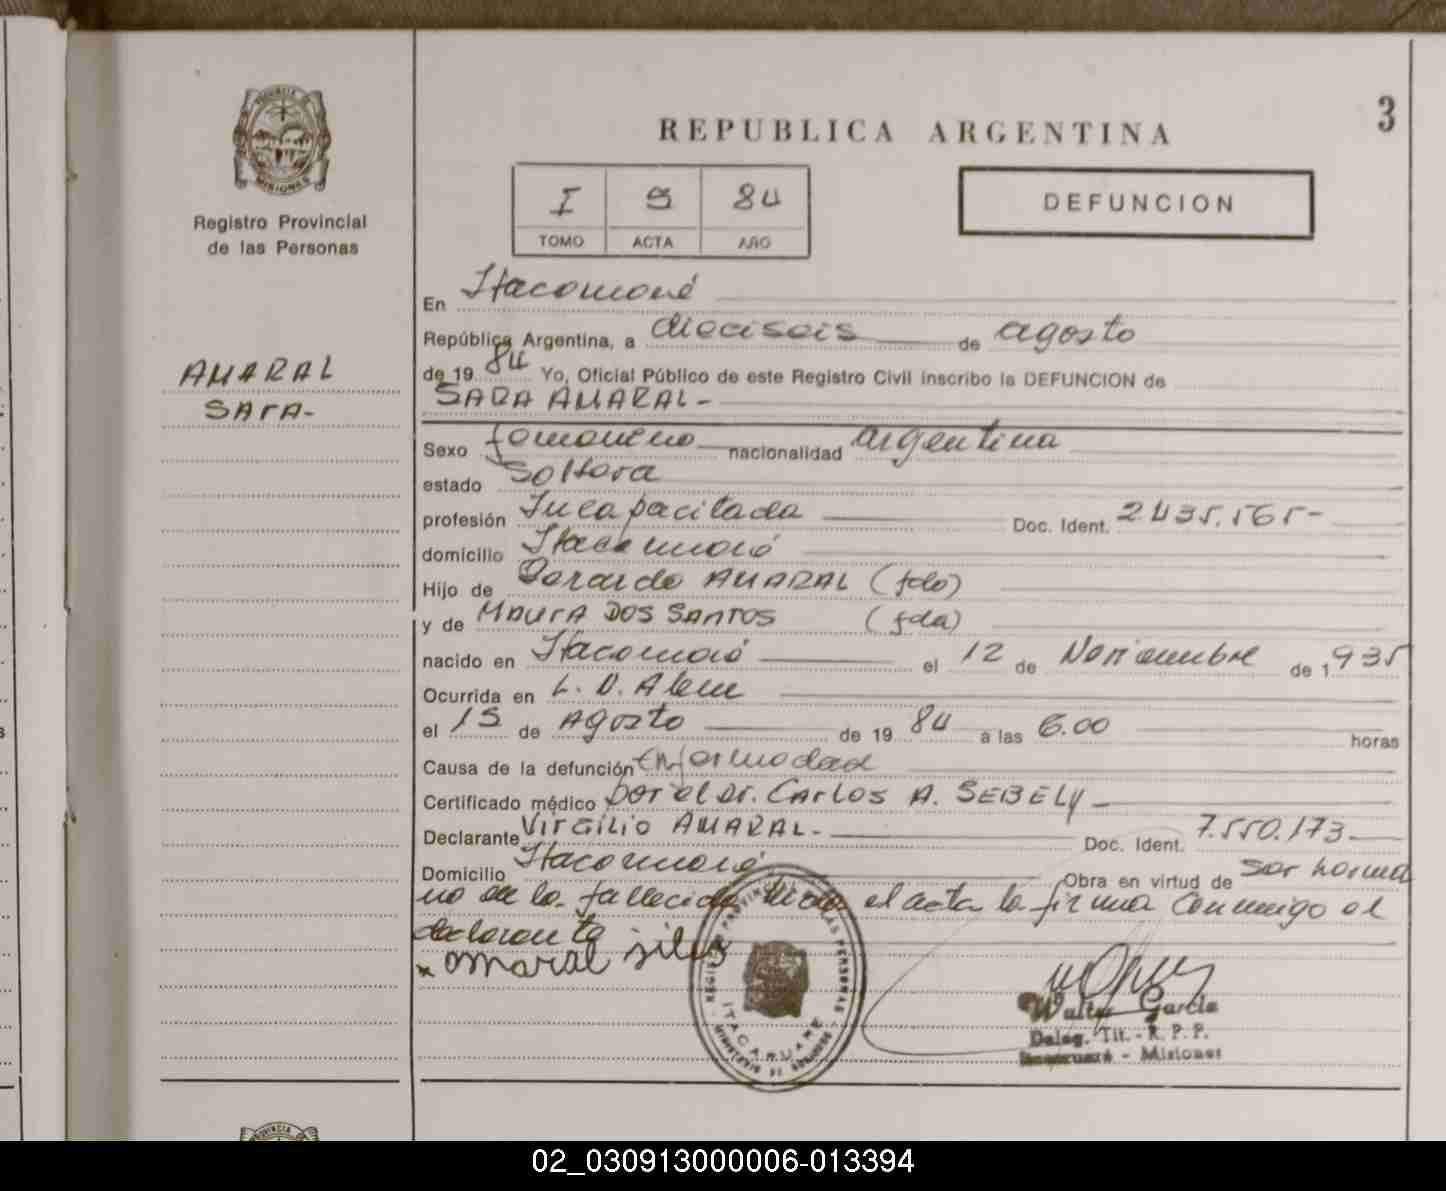 3
REPUBLICA ARGENTINA
PROVINCIA DE
MISIONES
Registro Provincial
de las Personas
I 5 84
TOMO ACTA AÑO
DEFUNCION
AMARAL
SARA-
En Itacaruaré
República Argentina, a dieciseis de agosto
de 19 84 Yo, Oficial Público de este Registro Civil inscribo la DEFUNCION de
SARA AMARAL -
Sexo femenino nacionalidad argentina
estado Soltera
profesión Incapacitada Doc. Ident. 2.435.565-
domicilio Itacaruaré
Hijo de Gerardo AMARAL (fdo)
y de MAURA DOS SANTOS (fda)
nacido en Itacaruaré el 12 de Noviembre de 1935
Ocurrida en L. N. Alem
el 15 de Agosto de 19 84 a las 6.00 horas
Causa de la defunción Enfermedad
Certificado médico por el Dr. CARLOS A. SEBELY -
Declarante VIRGILIO AMARAL- Doc. Ident. 7.550.173-
Domicilio Itacaruaré Obra en virtud de ser herma
no de la fallecida el acta la firma conmigo el
declarante
x amaral
REGISTRO PROVINCIAL DE LAS PERSONAS
ITACARUARE
Walter García
Deleg. Tit. - R. P. P.
Itacaruaré - Misiones
PROVINCIA DE
02_030913000006-013394